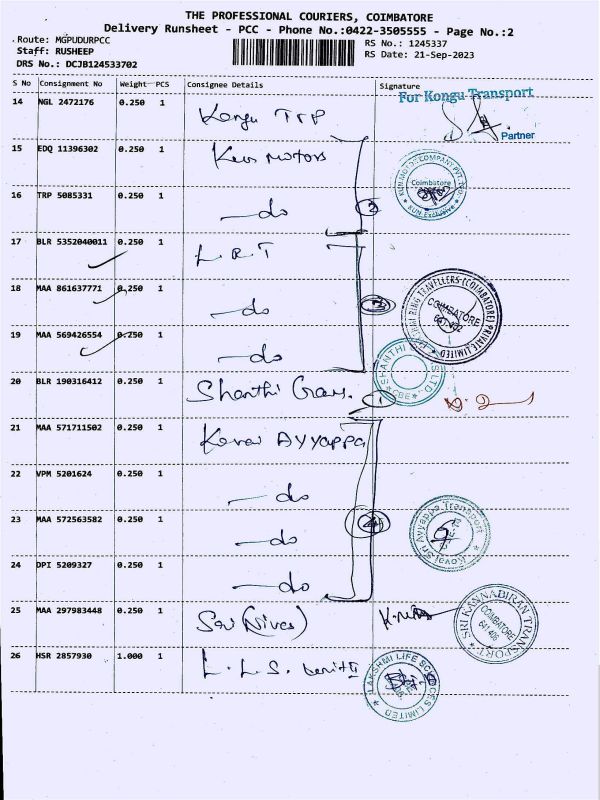 THE PROFESSIONAL COURIERS, COIMBATORE
Delivery Runsheet - PCC - Phone No.:0422-3505555 - Page No.:2
Route: MGPUDURPCC
RS No.: 1245337
Staff: RUSHEEP
RS Date: 21-Sep-2023
DRS No.: DCJB124533702
S No Consignment No Weight PCS Consignee Details Signature
For Kongu Transport
14 NGL 2472176 0.250 1 Kongu TRP
Partner
15 EDQ 11396302 0.250 1 Kun Motors
KUN MOTOR COMPANY PVT. LTD. Coimbatore KUN Exclusive
16 TRP 5085331 0.250 1 —do 2
17 BLR 5352040011 0.250 1 L R T
18 MAA 861637771 0.250 1 —do 3
RING TRAVELLERS (COIMBATORE) PRIVATE LIMITED COIMBATORE 641 402
19 MAA 569426554 0.250 1 —do
SHANTHI LTD. CBE
20 BLR 190316412 0.250 1 Shanthi Gears. 1
21 MAA 571711502 0.250 1 Kovai AYYAPPA
22 VPM 5201624 0.250 1 —do
23 MAA 572563582 0.250 1 —do 4
Kovai Sri Ayyappa Transport
24 DPI 5209327 0.250 1 —do
25 MAA 297983448 0.250 1 Sri (Nivas)
SRI KANNABIRAN TRANSPORT COIMBATORE 641 406
26 HSR 2857930 1.000 1 L. L. S. Unit II
LAKSHMI LIFE SCIENCES LIMITED